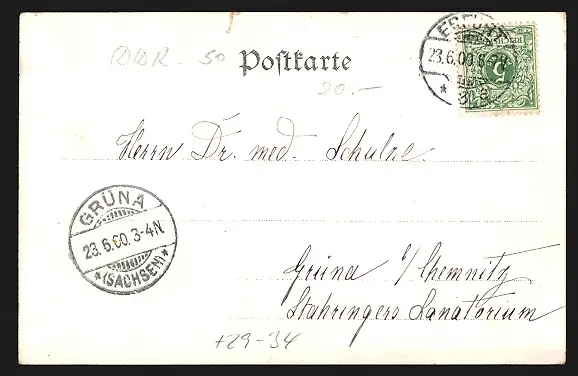 DDR - 50
Postkarte
20.-
ERFURT
23.6.00.8-9V.
* 3 a
5
Herrn Dr. med. Schulze.
GRÜNA
23.6.00.3-4N.
*(SACHSEN)*
Grüna i/Chemnitz
Stahringers Sanatorium
+29-34